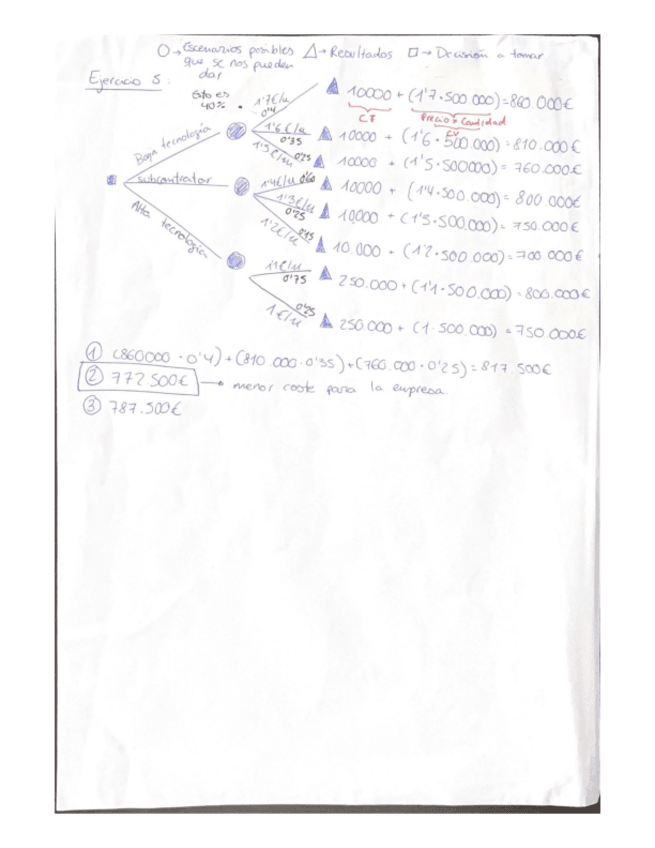 O→ Escenarios posibles △→ Resultados □→ Decisión a tomar
que se nos pueden
dar
Ejercicio 5:
Esto es
40%
Baja tecnología
1'7€/u
0'4
1'6€/u
0'35
1'5€/u 0'25
10000 + (1'7·500.000)=860.000€
CF
Precio x Cantidad
CV
10000 + (1'6·500.000)=810.000€
10000 + (1'5·500000)= 760.000€
subcontratar
1'4€/u 0'60
1'3€/u
0'25
1'2€/u 0'15
10000 + (1'4·500.000)= 800.000€
10.000 + (1'3·500.000)= 750.000€
10.000 + (1'2·500.000)=700.000€
Alta tecnología
1'1€/u
0'75
1€/u 0'25
250.000+(1'1·500.000)=800.000€
250.000 + (1·500.000) =750.000€
① (860000·0'4)+(810.000·0'35)+(760.000·0'25)=817.500€
② 772.500€ → menor coste para la empresa
③ 787.500€